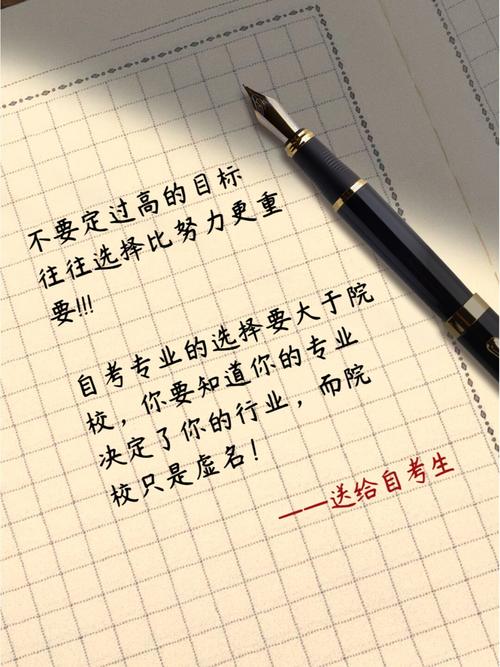 不要定过高的目标
往往选择比努力更重
要!!!
自考专业的选择要大于院
校，你要知道你的专业
决定了你的行业，而院
校只是虚名！
——送给自考生